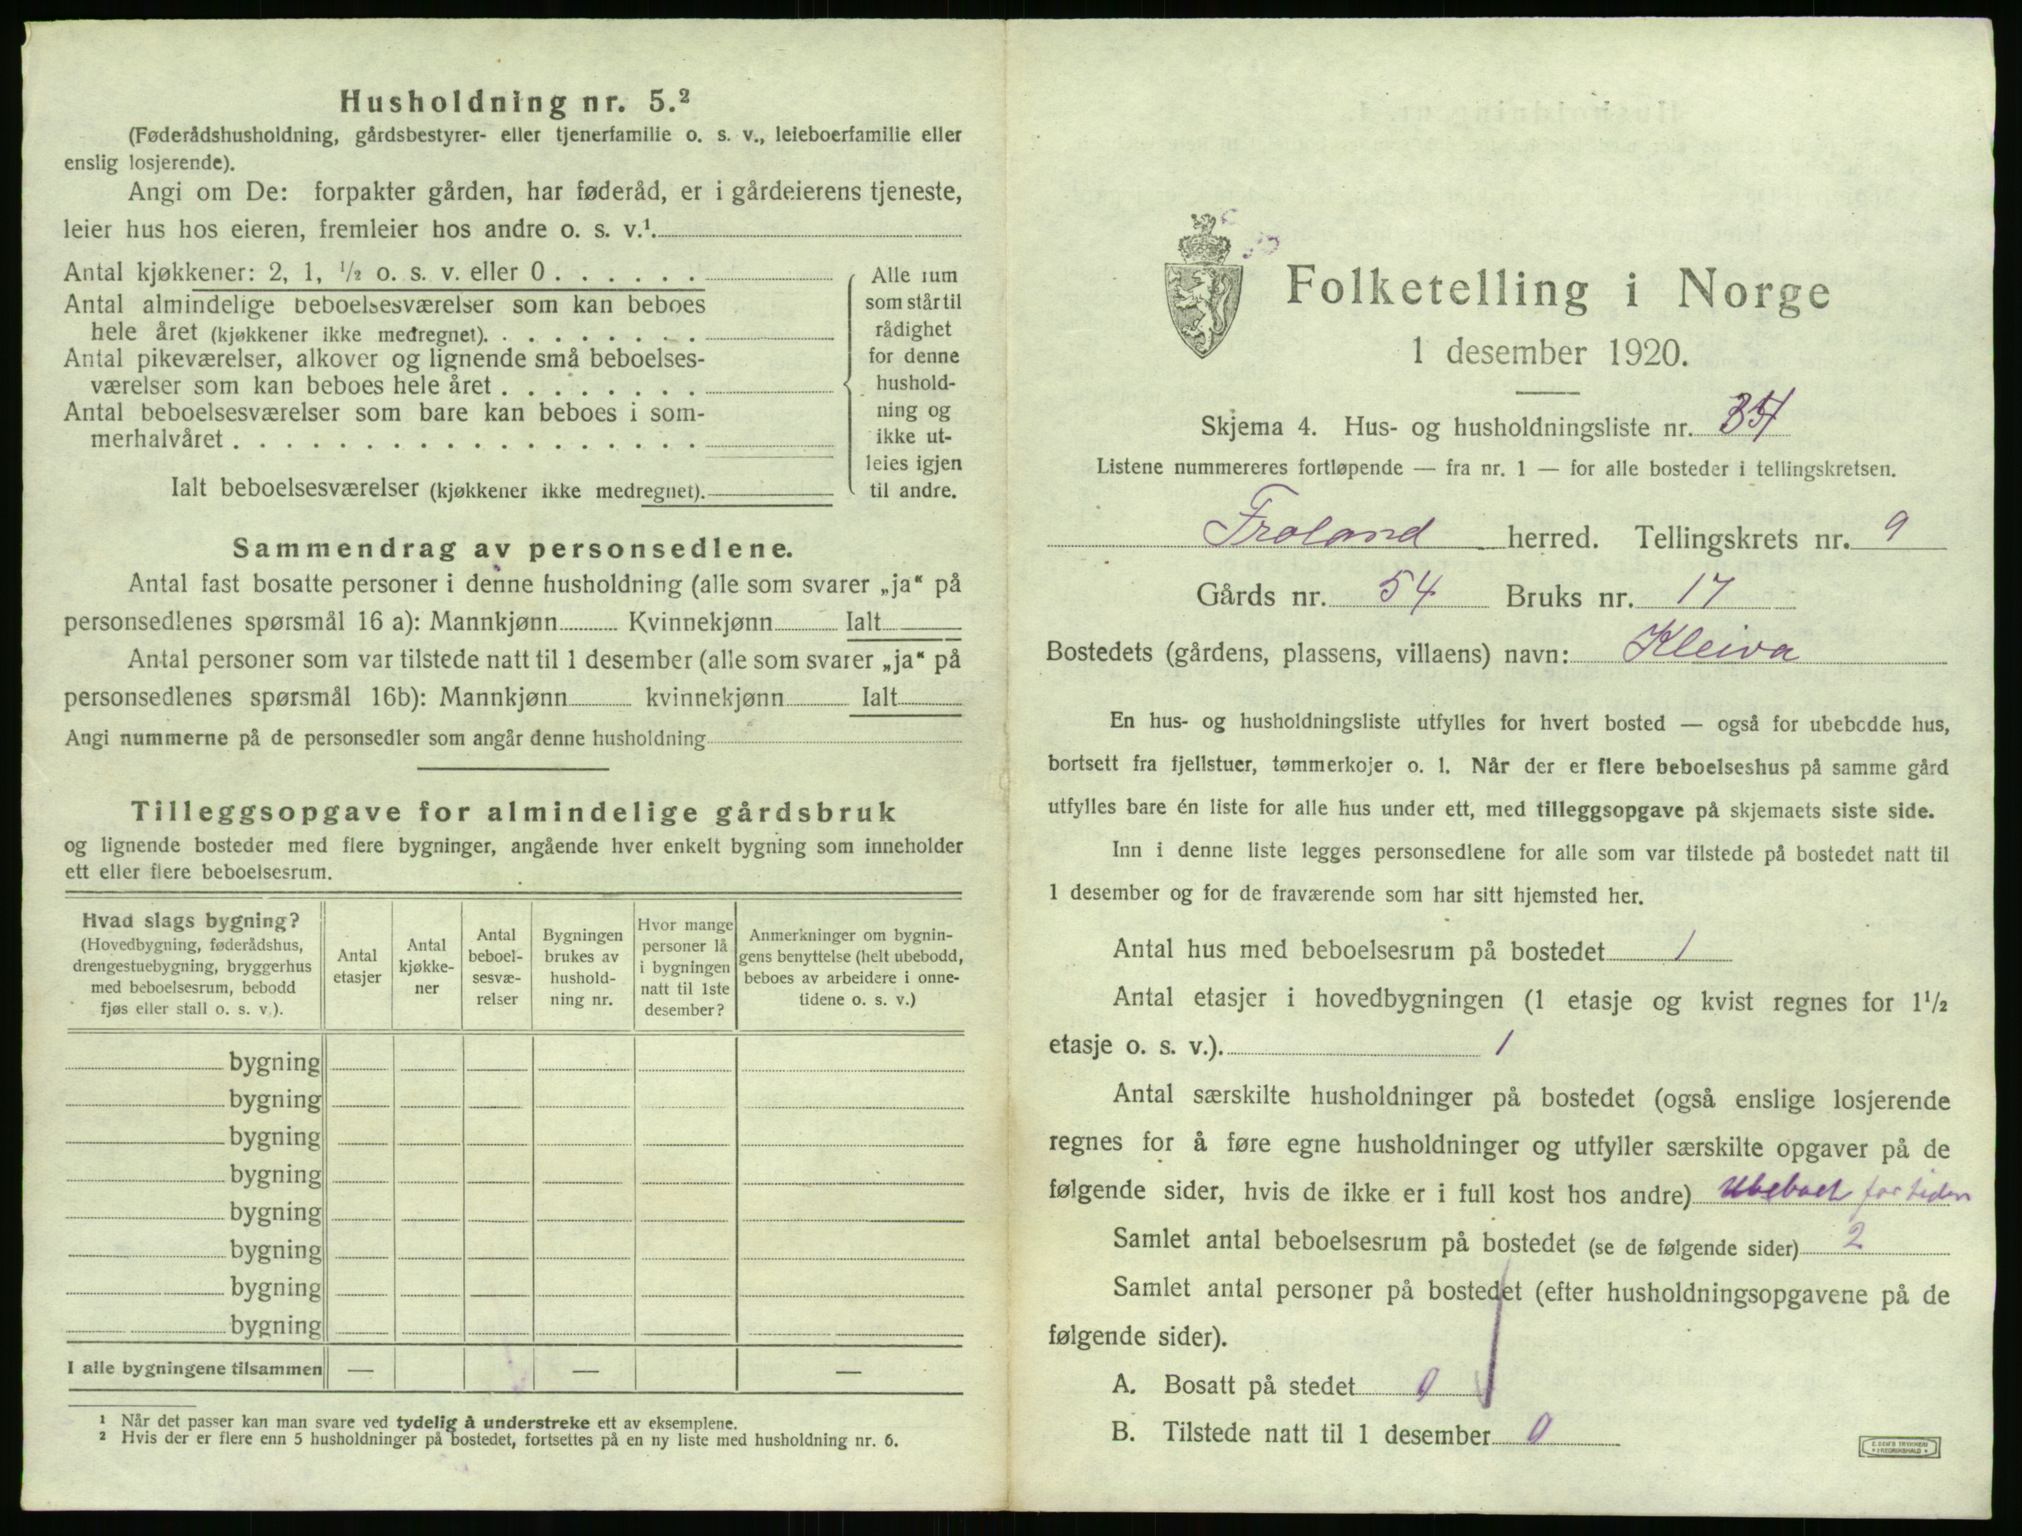 Husholdning nr. 5.²
(Føderådshusholdning, gårdsbestyrer- eller tjenerfamilie o. s. v., leieboerfamilie eller
enslig losjerende).
Angi om De: forpakter gården, har føderåd, er i gårdeierens tjeneste,
leier hus hos eieren, fremleier hos andre o. s. v.¹.
Antal kjøkkener: 2, 1, ½ o. s. v. eller 0 . . . . . .
Antal almindelige beboelsesværelser som kan beboes
hele året (kjøkkener ikke medregnet). . . . . . . . .
Antal pikeværelser, alkover og lignende små beboelses-
værelser som kan beboes hele året . . . . . . . .
Antal beboelsesværelser som bare kan beboes i som-
merhalvåret . . . . . . . . . . . . . . . . . .
Ialt beboelsesværelser (kjøkkener ikke medregnet).
Alle rum
som står til
rådighet
for denne
hushold-
ning og
ikke ut-
leies igjen
til andre.
Sammendrag av personsedlene.
Antal fast bosatte personer i denne husholdning (alle som svarer „ja“ på
personsedlenes spørsmål 16 a): Mannkjønn Kvinnekjønn Ialt
Antal personer som var tilstede natt til 1 desember (alle som svarer „ja“ på
personsedlenes spørsmål 16b): Mannkjønn kvinnekjønn Ialt
Angi nummerne på de personsedler som angår denne husholdning
Tilleggsopgave for almindelige gårdsbruk
og lignende bosteder med flere bygninger, angående hver enkelt bygning som inneholder
ett eller flere beboelsesrum.
Hvad slags bygning?
(Hovedbygning, føderådshus,
drengestuebygning, bryggerhus
med beboelsesrum, bebodd
fjøs eller stall o. s. v.).
Antal
etasjer
Antal
kjøkke-
ner
Antal
beboel-
sesvæ-
relser
Bygningen
brukes av
hushold-
ning nr.
Hvor mange
personer lå
i bygningen
natt til 1ste
desember?
Anmerkninger om bygnin-
gens benyttelse (helt ubebodd,
beboes av arbeidere i onne-
tidene o. s. v.)
bygning
bygning
bygning
bygning
bygning
bygning
bygning
bygning
I alle bygningene tilsammen — — —
¹ Når det passer kan man svare ved tydelig å understreke ett av eksemplene.
² Hvis der er flere enn 5 husholdninger på bostedet, fortsettes på en ny liste med husholdning nr. 6.
Folketelling i Norge
1 desember 1920.
Skjema 4. Hus- og husholdningsliste nr.
Listene nummereres fortløpende — fra nr. 1 — for alle bosteder i tellingskretsen.
Froland herred. Tellingskrets nr. 9
Gårds nr. 54 Bruks nr. 17
Bostedets (gårdens, plassens, villaens) navn: Kleiva
En hus- og husholdningsliste utfylles for hvert bosted — også for ubebodde hus,
bortsett fra fjellstuer, tømmerkojer o. l. Når der er flere beboelseshus på samme gård
utfylles bare én liste for alle hus under ett, med tilleggsopgave på skjemaets siste side.
Inn i denne liste legges personsedlene for alle som var tilstede på bostedet natt til
1 desember og for de fraværende som har sitt hjemsted her.
Antal hus med beboelsesrum på bostedet 1
Antal etasjer i hovedbygningen (1 etasje og kvist regnes for 1½
etasje o. s. v.). 1
Antal særskilte husholdninger på bostedet (også enslige losjerende
regnes for å føre egne husholdninger og utfyller særskilte opgaver på de
følgende sider, hvis de ikke er i full kost hos andre) Ubeboet for tiden
Samlet antal beboelsesrum på bostedet (se de følgende sider) 2
Samlet antal personer på bostedet (efter husholdningsopgavene på de
følgende sider).
A. Bosatt på stedet 0
B. Tilstede natt til 1 desember 0